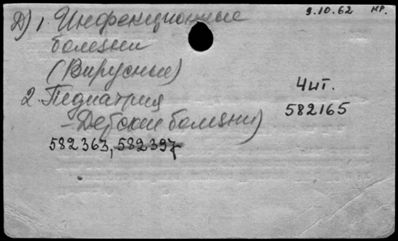 9.10.62 нр.
Д) 1. Инфекционные
болезни
(Вирусные)
2. Педиатрия
- Детские болезни)
4 шт.
582165
582363, 582397